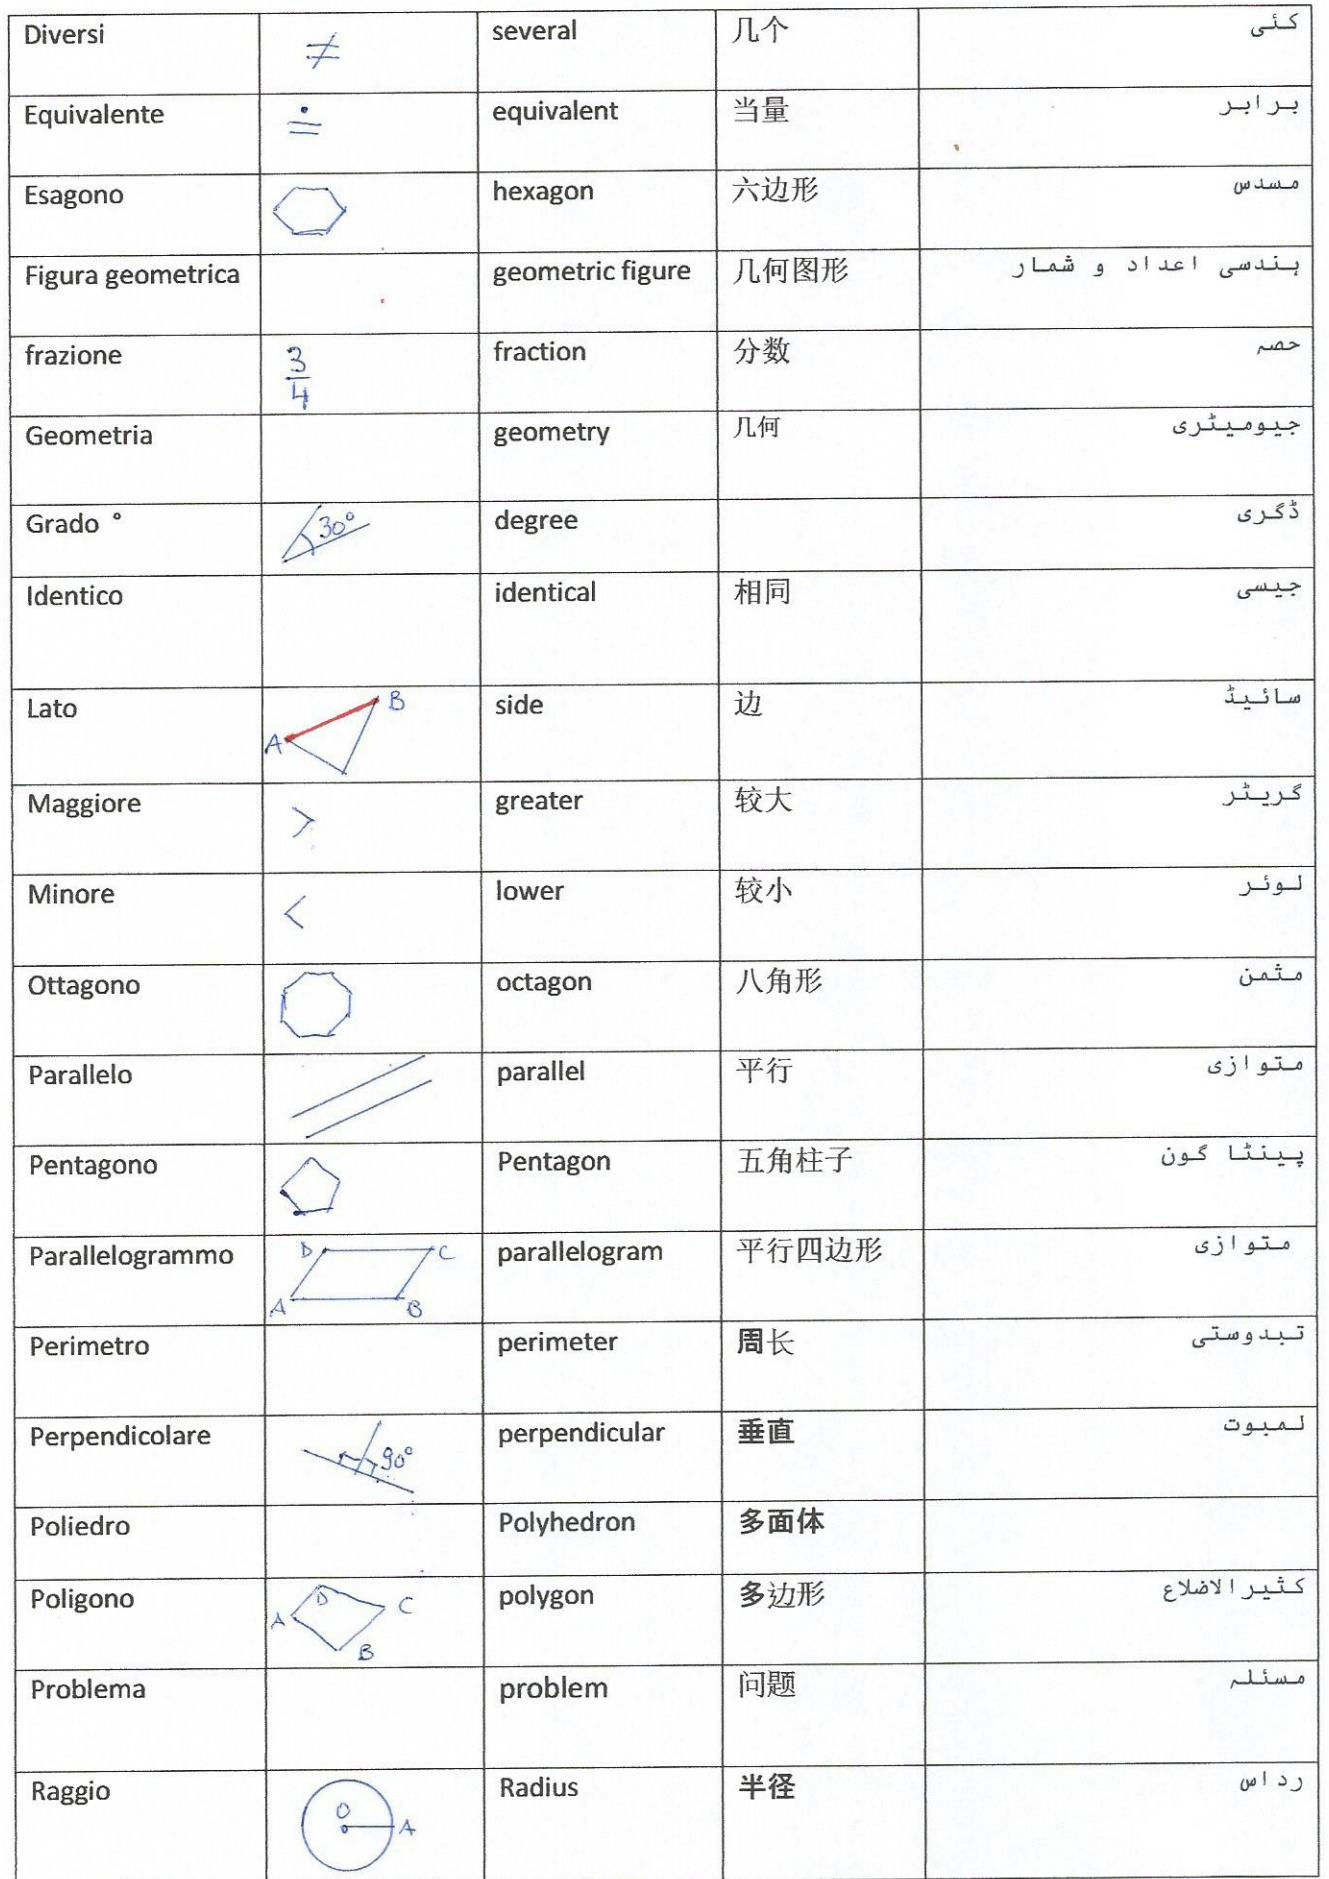 Diversi ≠ several 几个 کئی
Equivalente ≐ equivalent 当量 برابر
Esagono hexagon 六边形 مسدس
Figura geometrica geometric figure 几何图形 ہندسی اعداد و شمار
frazione 3/4 fraction 分数 حصہ
Geometria geometry 几何 جیومیٹری
Grado ° 30° degree ڈگری
Identico identical 相同 جیسی
Lato A B side 边 سائیڈ
Maggiore > greater 较大 گریٹر
Minore < lower 较小 لوئر
Ottagono octagon 八角形 مثمن
Parallelo parallel 平行 متوازی
Pentagono Pentagon 五角柱子 پینٹا گون
Parallelogrammo D C A B parallelogram 平行四边形 متوازی
Perimetro perimeter 周长 تبدوستی
Perpendicolare 90° perpendicular 垂直 لمبوت
Poliedro Polyhedron 多面体
Poligono A D C B polygon 多边形 کثیرالاضلاع
Problema problem 问题 مسئلہ
Raggio O A Radius 半径 رداس